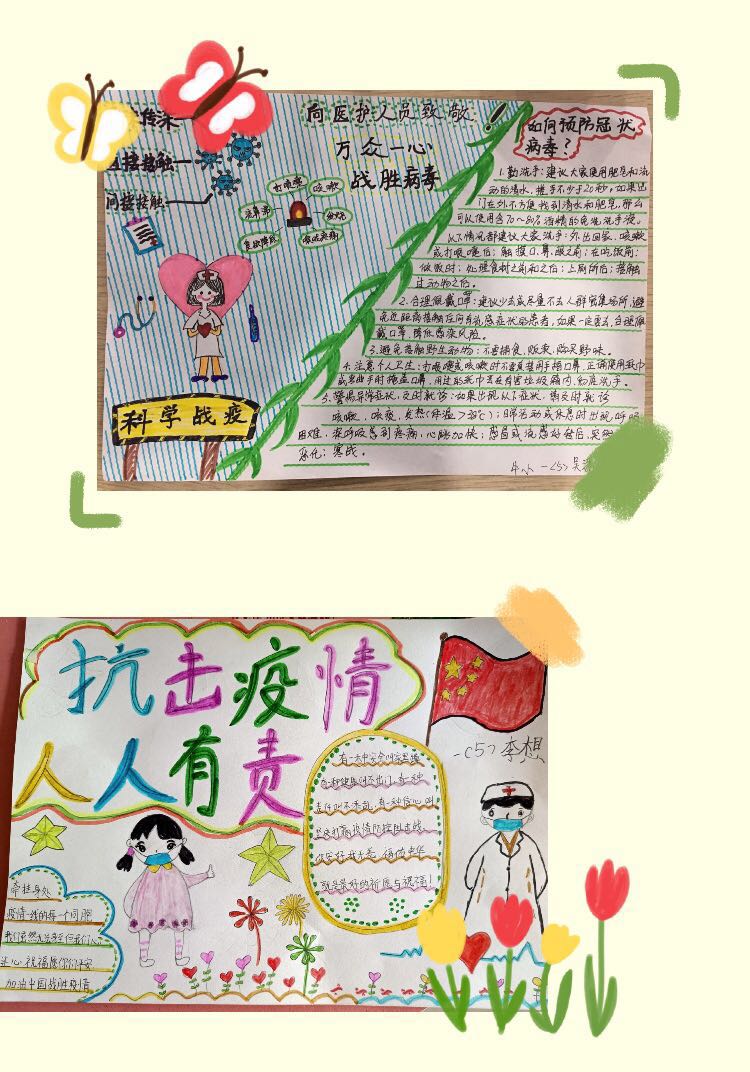 传沫
直接接触
间接接触
向医护人员致敬
万众一心
战胜病毒
打喷嚏
咳嗽
流鼻涕
发烧
科学战疫
如何预防冠状
病毒?
1.勤洗手:建议大家使用肥皂和流
动的清水,搓手不少于20秒,如果出
门在外不方便找到清水和肥皂,那么
可以使用含70~80%酒精的免洗洗手液。
以下情况都建议大家洗手:外出回家、咳嗽
或打喷嚏后;触摸口、鼻、眼之前;在吃饭前;
做饭时;处理食材之前和之后;上厕所后;接触
过动物之后。
2.合理佩戴口罩:建议少去或尽量不去人群密集场所,避
免近距离接触任何有流感症状的患者,如果一定要去,合理佩
戴口罩,降低感染风险。
3.避免接触野生动物:不要捕食、贩卖、购买野味。
4.注意个人卫生:打喷嚏或咳嗽时不要直接用手捂口鼻,正确使用纸巾
5.警惕异常症状,及时就诊:如果出现以下症状,请及时就诊
咳嗽、咳痰、发热(体温>38℃);日常活动或休息时出现呼吸
困难、深呼吸感到疼痛,心跳加快;感冒或流感好转后,突然
恶化;寒战。
一<5>吴
抗击疫情
人人有责
一<5>李想
有一种安全叫家里蹲
有一种健康叫不出门,有一种
责任叫不添乱,有一种信心叫
坚决打赢疫情防控阻击战
就是最好的祈愿与祝福!
牵挂身处
疫情一线的每一个同胞
祝福愿你们平安
加油中国战胜疫情